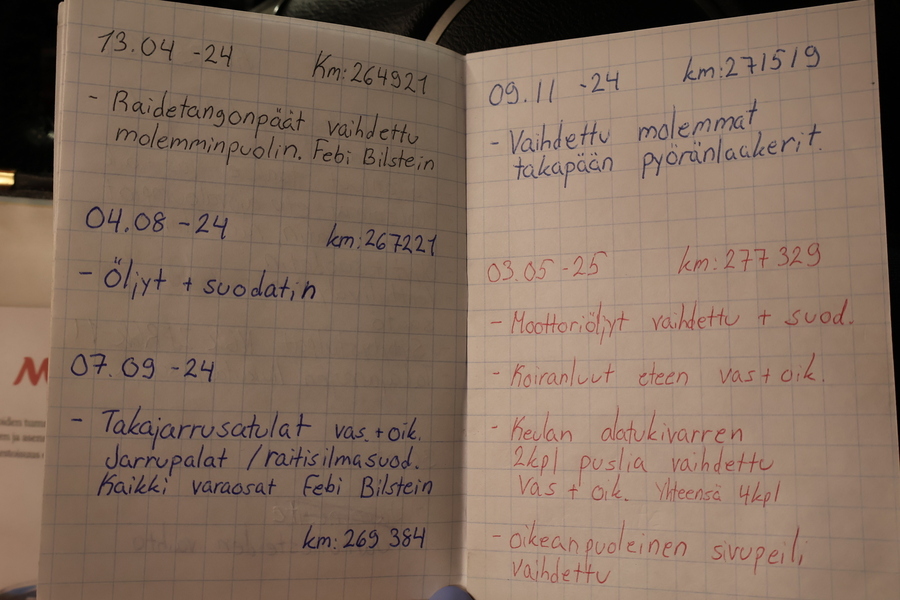 13.04 -24 Km:264921
- Raidetangonpäät vaihdettu
molemminpuolin. Febi Bilstein
04.08 -24 km:267221
- Öljyt + suodatin
07.09 -24
- Takajarrusatulat vas.+oik.
Jarrupalat /raitisilmasuod.
Kaikki varaosat Febi Bilstein
km:269 384
09.11 -24 km:271519
- Vaihdettu molemmat
takapään pyöränlaakerit.
03.05 -25 km:277 329
- Moottoriöljyt vaihdettu + suod.
- Koiranluut eteen vas + oik.
- Keulan alatukivarren
2kpl puslia vaihdettu
vas + oik. Yhteensä 4kpl
- oikeanpuoleinen sivupeili
vaihdettu